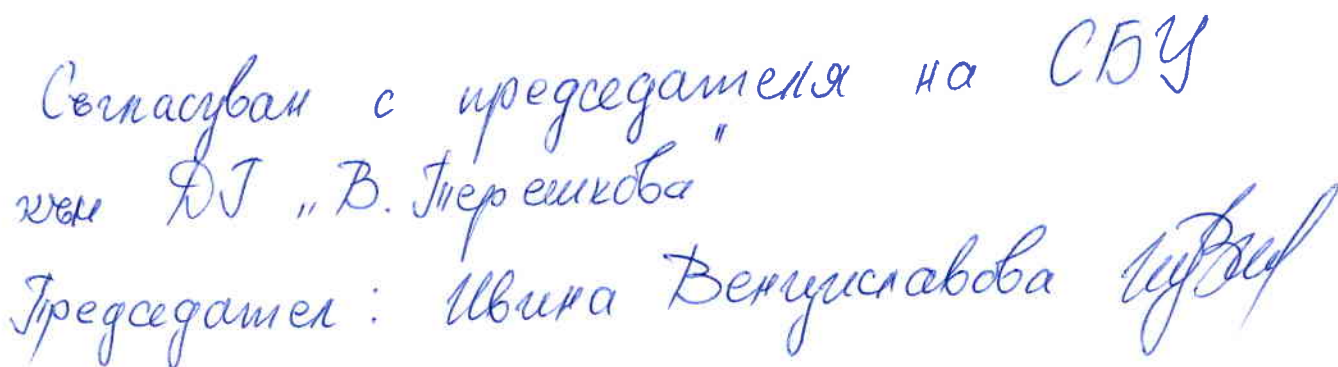 Съгласуван с председателя на СБУ
към ДГ „В. Терешкова"
Председател: Ивина Венциславова